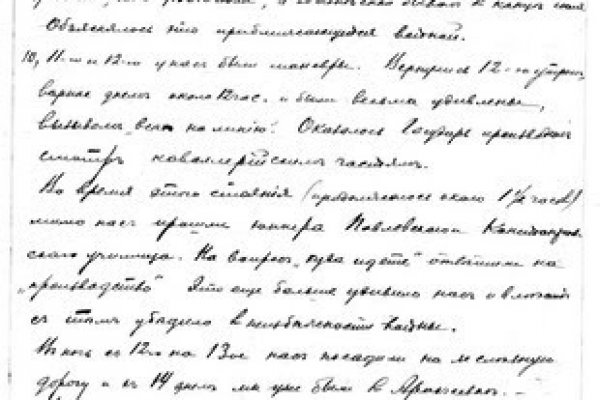 Объяснялось это приближающейся войной.
10, 11-го и 12-го у нас были маневры. Вернулись 12-го утром,
вернее днем около 12 час. и были весьма удивлены,
вызовом „всех на линию". Оказалось Государь производит
смотр кавалерийским частям.
Во время этого стояния (продолжалось около 1½ часов)
мимо нас прошли юнкера Павловского Константинов-
ского училища. На вопрос „куда идете" ответили на
„производство" Это еще больше удивило нас и вместе
с тем убедило в неизбежности войны.
В ночь с 12го на 13ое нас посадили на железную
дорогу и в 14 днем мы уже были в